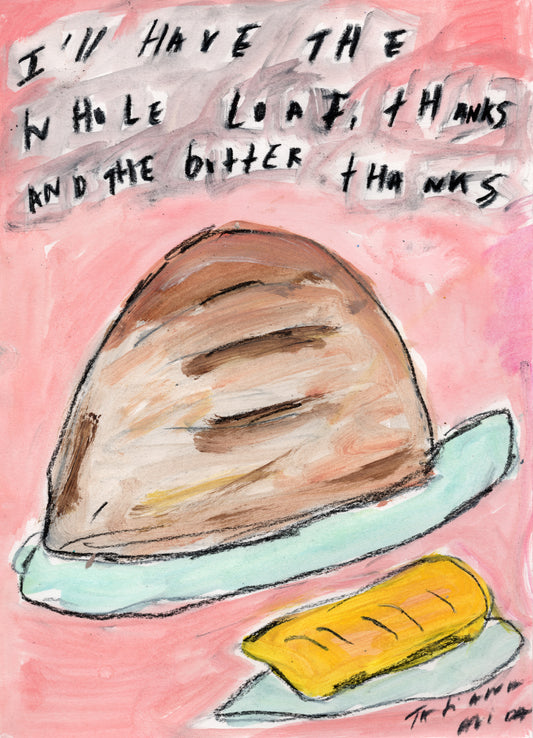 I'll HAVE THE
WHOLE LOAF, tHANKS
AND THE bUttER tHANKS